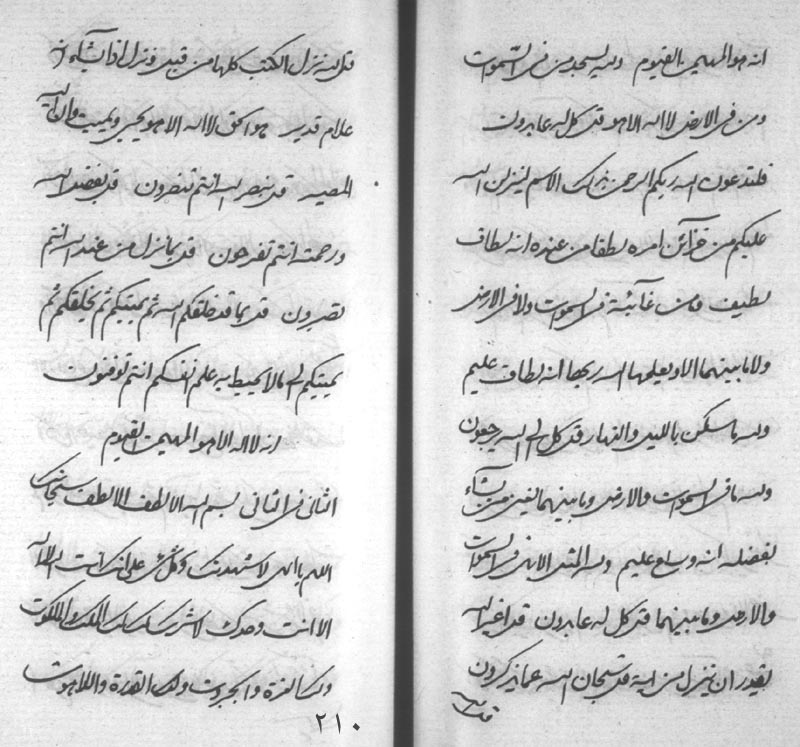 انه هو المهيمن القيوم ولله يسجد من في السموات
ومن في الارض لا اله الا هو قل كل له عابدون
فلتدعون الله ربكم الرحمن بذلك الاسم لينزلن الله
عليكم من خزائن امره لطفا من عنده انه لطاف
لطيف وما من غآئبة في السموات ولا في الارض
ولا ما بينهما الا وقد يعلمها الله ربها انه لطاف عليم
وله ما سكن بالليل والنهار قل كل الى الله يرجعون
ولله ما في السموات والارض وما بينهما يغني من يشآء
بفضله انه وساع عليم وله المثل الاعلى في السموات
والارض وما بينهما قل كل له عابدون قل اغير الله
يقدر ان ينزل من اية قل سبحان الله عما يذكرون
قل الله
قل الله نزل الكتب كلها من قبل وينزل اذا يشآء انه
علام قدير هو الحق لا اله الا هو يحيي ويميت وان اليه
المصير قل بنصر الله انتم تنصرون قل بفضل الله
ورحمته انتم تفرحون قل بما نزل من عند الله انتم
تصبرون قل بما قد خلقكم الله ثم يميتكم ثم يخلقكم ثم
يميتكم الى ما لا يحيط به علم انفسكم انتم توقنون
انه لا اله الا هو المهيمن القيوم
الثاني في الثاني بسم الله الالطف الالطف سبحانك
اللهم يا الهي لاشهدنك وكل شئ على انك انت الله لا اله
الا انت وحدك لا شريك لك لك الملك والملكوت
ولك العزة والجبروت ولك القدرة واللاهوت
٢١٠